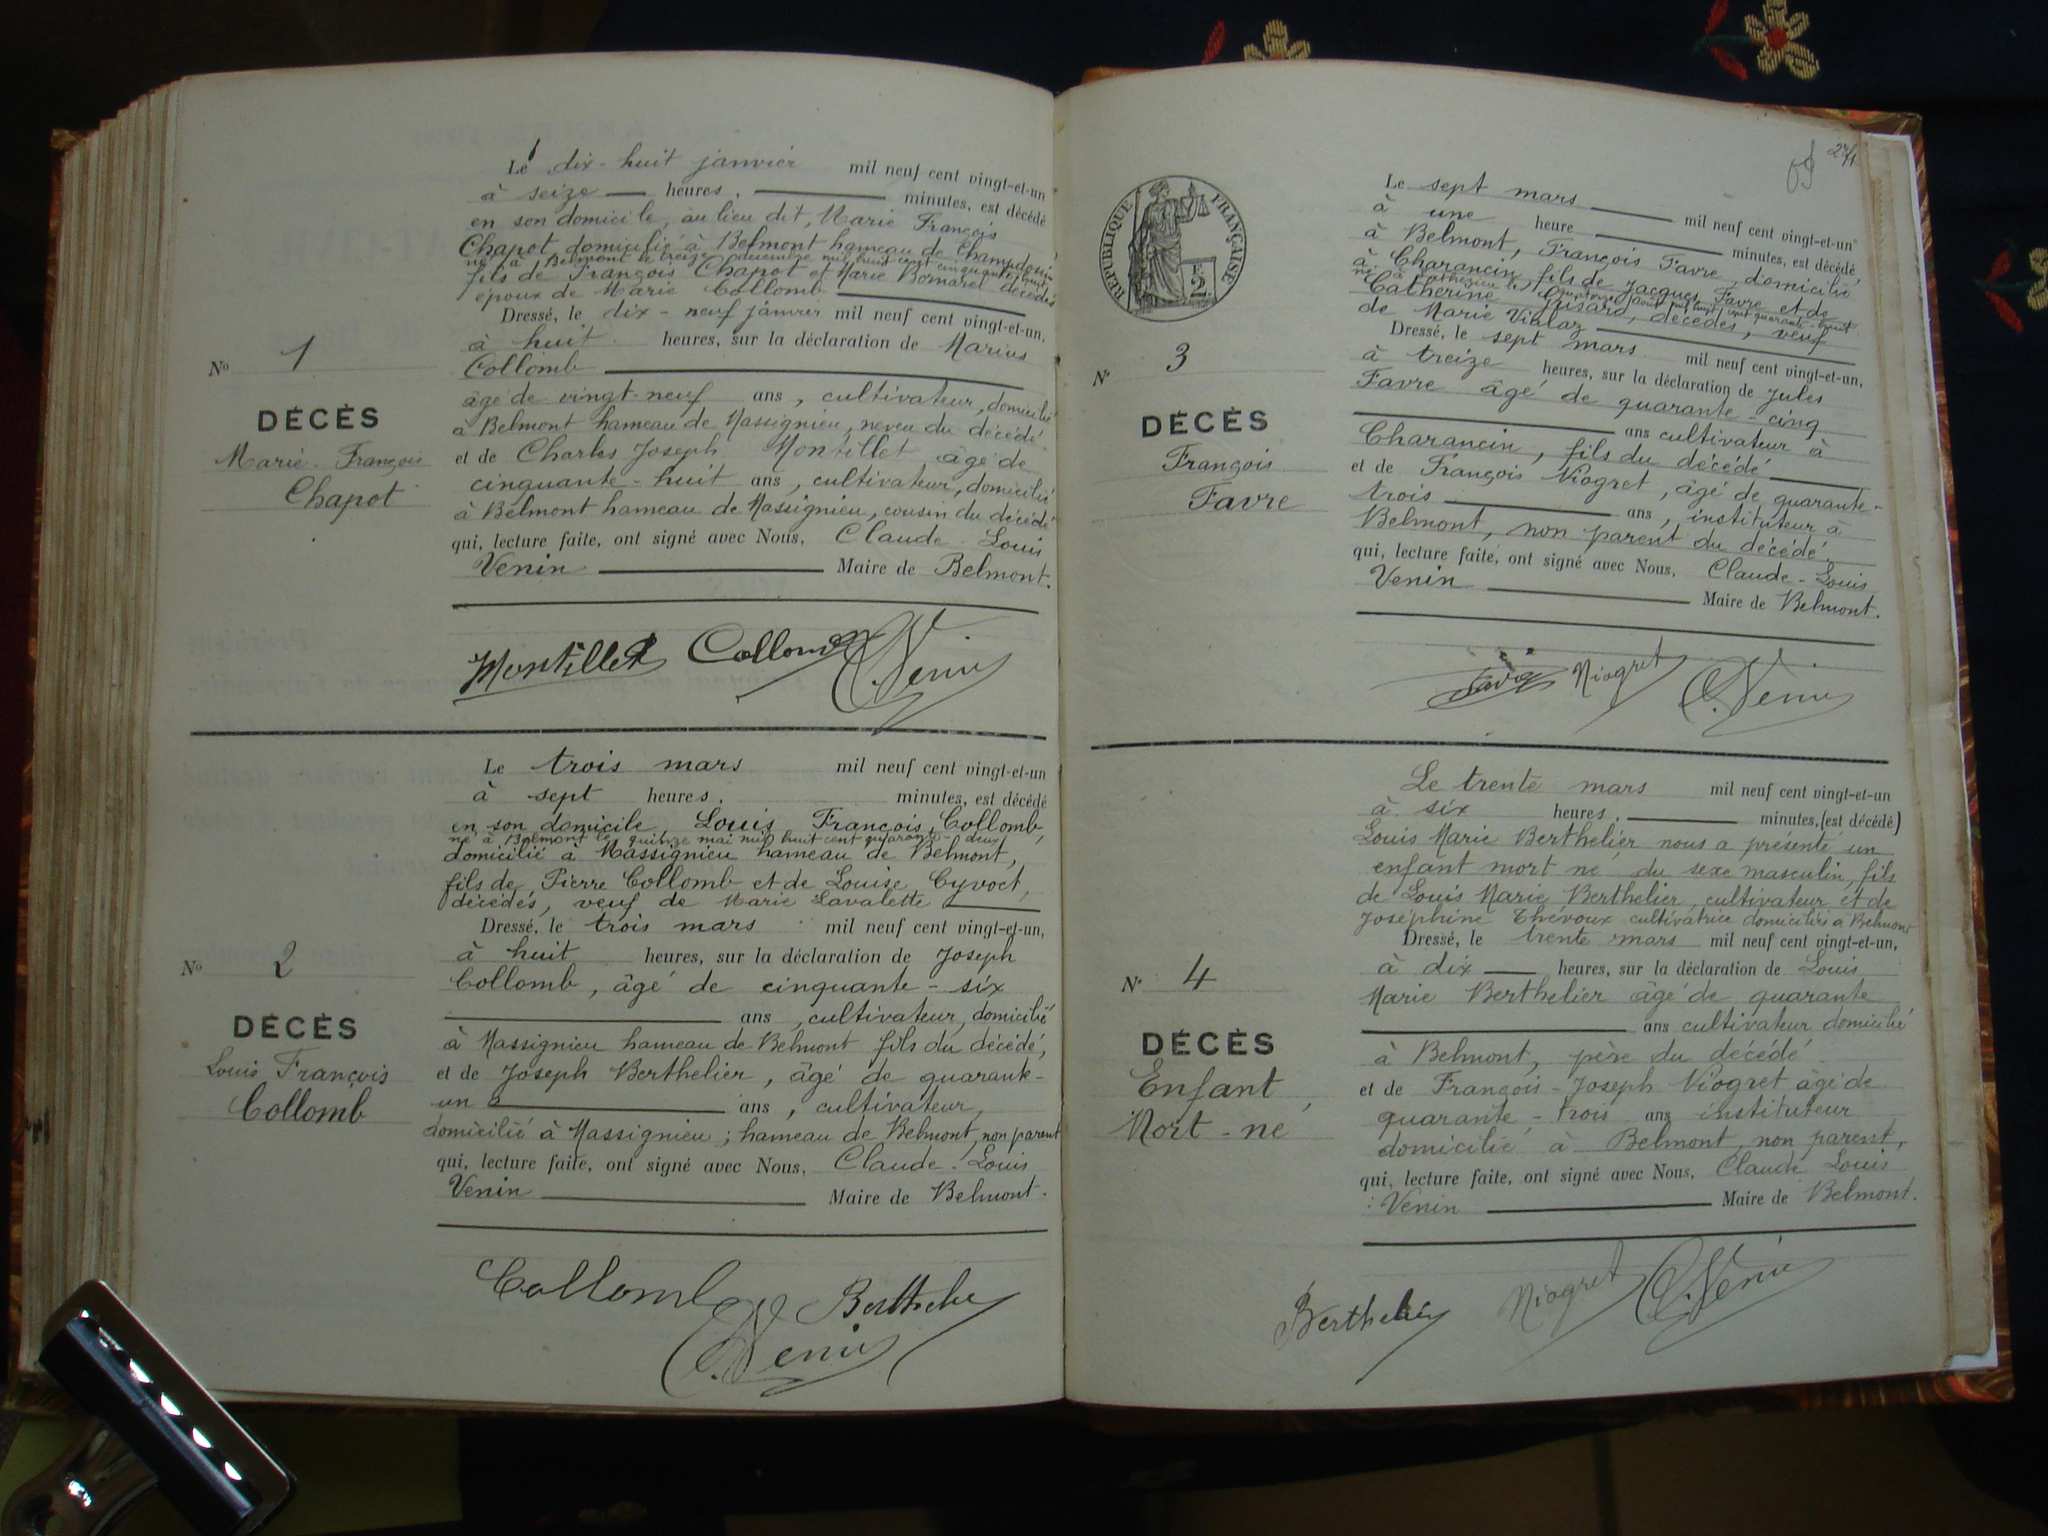 Le dix-huit janvier mil neuf cent vingt-et-un
à seize heures, minutes, est décédé
en son domicile, au lieu dit, Marie François
Chapot domicilié à Belmont hameau de Champdossin
né à Belmont le treize décembre mil huit cent cinquante-huit
fils de François Chapot et Marie Bomarel décédés
époux de Marie Collomb
Dressé, le dix-neuf janvier mil neuf cent vingt-et-un,
à huit heures, sur la déclaration de Marius
Collomb
âgé de vingt-neuf ans, cultivateur, domicilié
à Belmont hameau de Massignieu, neveu du décédé
et de Charles Joseph Montillet âgé de
cinquante-huit ans, cultivateur, domicilié
à Belmont hameau de Massignieu, cousin du décédé
qui, lecture faite, ont signé avec Nous, Claude Louis
Venin Maire de Belmont.
No 1
DÉCÈS
Marie-François
Chapot
Montillet Collomb C. Venin
Le trois mars mil neuf cent vingt-et-un
à sept heures, minutes, est décédé
en son domicile Louis François Collomb,
né à Belmont le quinze mai mil huit cent quarante-deux
domicilié à Massignieu hameau de Belmont,
fils de Pierre Collomb et de Louise Cyvoct,
décédés, veuf de Marie Lavalette
Dressé, le trois mars mil neuf cent vingt-et-un,
à huit heures, sur la déclaration de Joseph
Collomb, âgé de cinquante-six
ans, cultivateur, domicilié
à Massignieu hameau de Belmont fils du décédé,
et de Joseph Berthelier, âgé de quarante-
un ans, cultivateur,
domicilié à Massignieu; hameau de Belmont, non parent
qui, lecture faite, ont signé avec Nous, Claude Louis
Venin Maire de Belmont.
No 2
DÉCÈS
Louis François
Collomb
Collomb Berthelier
C. Venin
RÉPUBLIQUE FRANÇAISE
Le sept mars mil neuf cent vingt-et-un
à une heure minutes, est décédé
à Belmont, François Favre, domicilié
à Charancin fils de Jacques Favre et de
Catherine décédés, veuf
de Marie Vialaz
Dressé, le sept mars mil neuf cent vingt-et-un,
à treize heures, sur la déclaration de Jules
Favre âgé de quarante-cinq
ans cultivateur à
Charancin, fils du décédé
et de François Niogret, âgé de quarante-
trois ans, instituteur à
Belmont, non parent du décédé
qui, lecture faite, ont signé avec Nous, Claude-Louis
Venin Maire de Belmont.
No 3
DÉCÈS
François
Favre
Niogret C. Venin
Le trente mars mil neuf cent vingt-et-un
à six heures, minutes, (est décédé)
Louis Marie Berthelier nous a présenté un
enfant mort né, du sexe masculin, fils
de Louis Marie Berthelier, cultivateur et de
Joséphine Thévoux cultivatrice domiciliés à Belmont
Dressé, le trente mars mil neuf cent vingt-et-un,
à dix heures, sur la déclaration de Louis
Marie Berthelier âgé de quarante
ans cultivateur domicilié
à Belmont, père du décédé
et de François-Joseph Niogret âgé de
quarante-trois ans instituteur
domicilié à Belmont, non parent,
qui, lecture faite, ont signé avec Nous, Claude Louis
Venin Maire de Belmont.
No 4
DÉCÈS
Enfant
Mort-né
Berthelier Niogret C. Venin